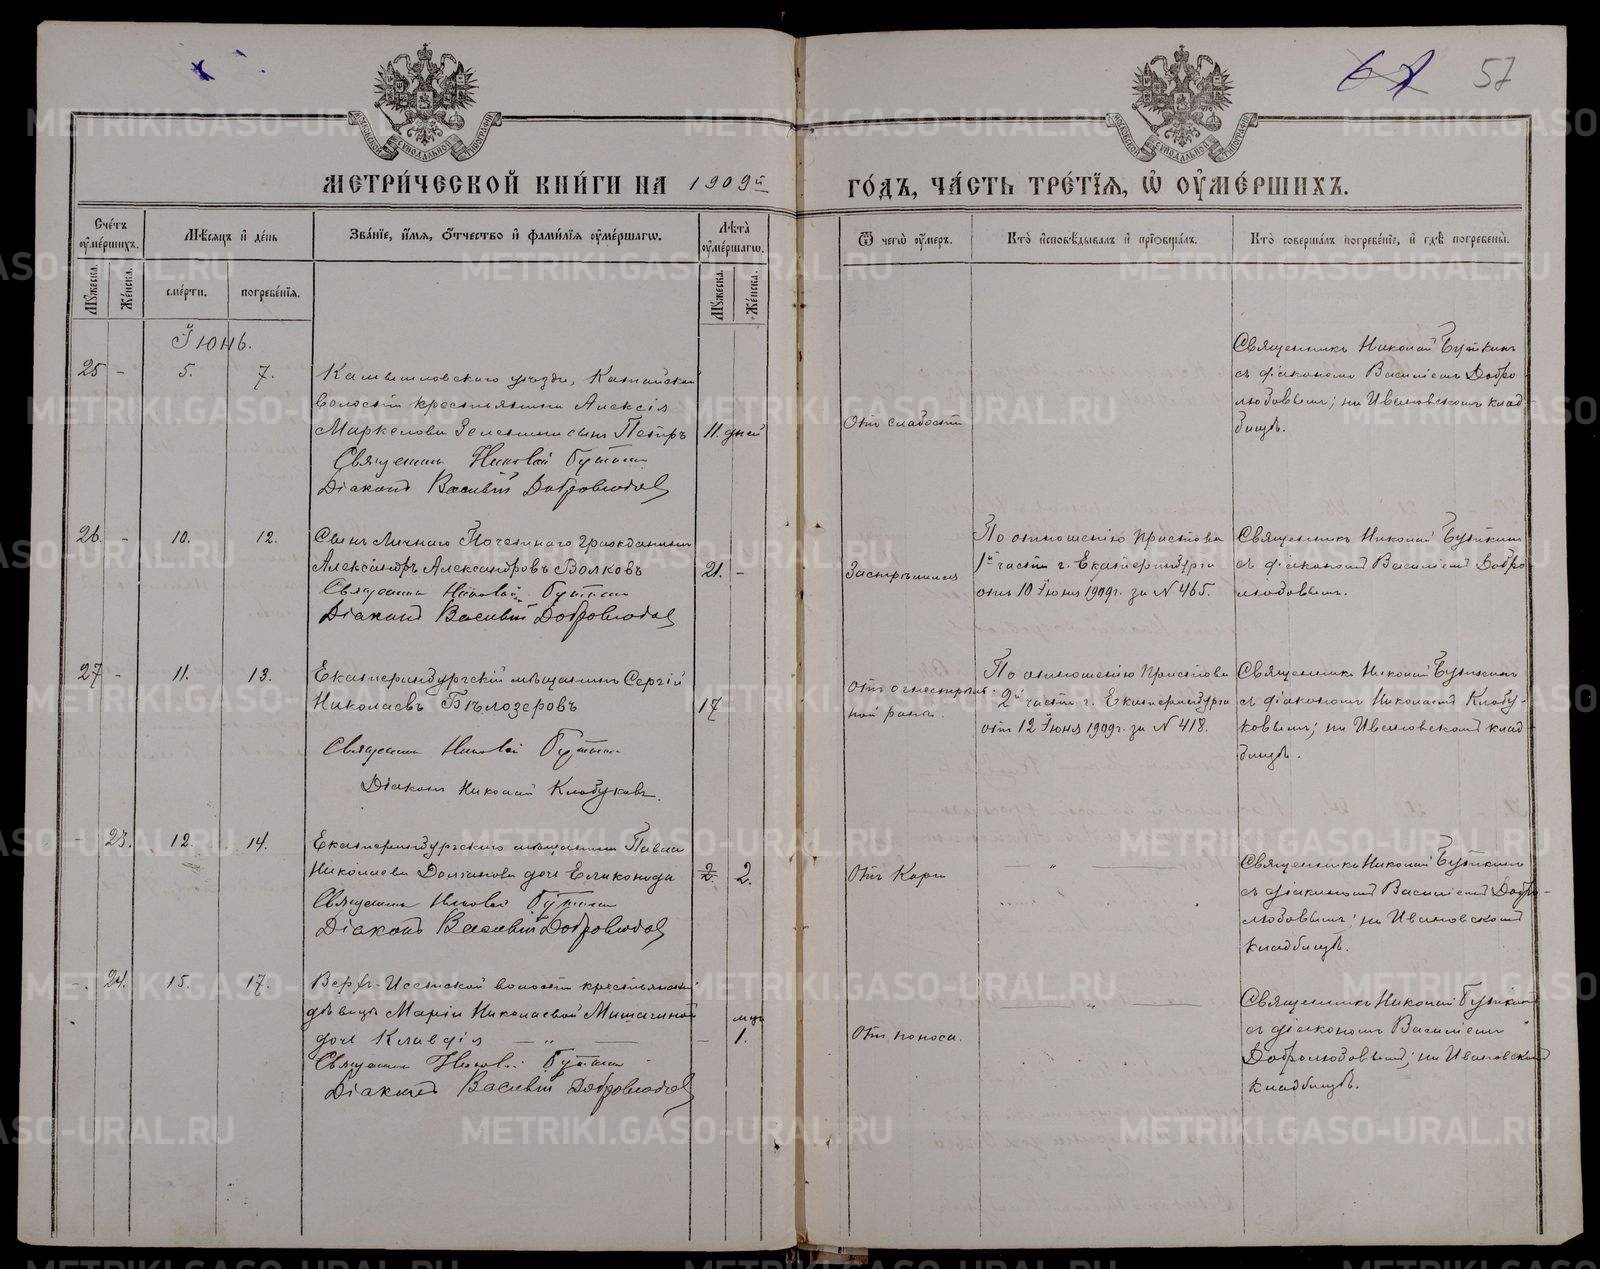 67 57
МОСКОВСКОЙ СѴНОДАЛЬНОЙ ТИПОГРАФІИ
МОСКОВСКОЙ СѴНОДАЛЬНОЙ ТИПОГРАФІИ
МЕТРИ́ЧЕСКОЙ КНИ́ГИ НА 1909й
ГО́ДЪ, ЧА́СТЬ ТРЕ́ТІѦ, Ѡ ОУМЕ́РШИХЪ.
Сче́тъ оумершихъ.
Мѣсяцъ и день
Зва́ніе, имя, отчество и фамилія оумершагѡ.
Лѣта оумершагѡ.
Мужеска.
Женска.
смерти.
погребенія.
Мужеска.
Женска.
Ѿ чегѡ оумеръ.
Кто исповѣдывалъ и пріобщалъ.
Кто совершалъ погребеніе, и гдѣ погребены.
Іюнь.
25 - 5. 7.
Камышловскаго уѣзда, Катайской
волости крестьянина Алексія
Маркелова Зеленина сынъ Петръ
11. дней
Священникъ Николай Буткинъ
Діаконъ Василій Добролюбовъ
Отъ слабости
Священникъ Николай Буткинъ
съ діакономъ Василіемъ Добро
любовымъ; на Ивановскомъ клад
бищѣ.
26. - 10. 12.
Сынъ Личнаго Почетнаго гражданина
Александръ Александровъ Волковъ
21. -
Священникъ Николай Буткинъ
Діаконъ Василій Добролюбовъ
Застрѣлился
По отношенію Пристава
1й части г. Екатеринбурга
отъ 10 Іюня 1909г. за N 465.
Священникъ Николай Буткинъ
съ діакономъ Василіемъ Добро-
любовымъ.
27 - 11. 13.
Екатеринбургскій мѣщанинъ Сергій
Николаевъ Бѣлозеровъ
17
Священникъ Николай Буткинъ
Діаконъ Николай Клобуковъ.
Отъ огнестрѣль-
ной раны.
По отношенію Пристава
2й части г. Екатеринбурга
отъ 12 Іюня 1909г. за N 418.
Священникъ Николай Буткинъ
съ діакономъ Николаемъ Клобу-
ковымъ; на Ивановскомъ клад-
бищѣ.
- 23. 12. 14.
Екатеринбургскаго мѣщанина Павла
Николаева дочь
2. 2.
Священникъ Николай Буткинъ
Діаконъ Василій Добролюбовъ
Отъ Кори
— " —
Священникъ Николай Буткинъ
съ діакономъ Василіемъ Добро-
любовымъ; на Ивановскомъ
кладбищѣ.
- 24. 15. 17.
Верхъ-Исетской волости крестьянской
дѣвицы Маріи Николаевой Мишагиной
дочь Клавдія — " —
- мца 1.
Священникъ Николай Буткинъ
Діаконъ Василій Добролюбовъ
Отъ поноса.
— " —
Священникъ Николай Буткинъ
съ діакономъ Василіемъ
Добролюбовымъ; на Ивановскомъ
кладбищѣ.
METRIKI.GASO-URAL.RU